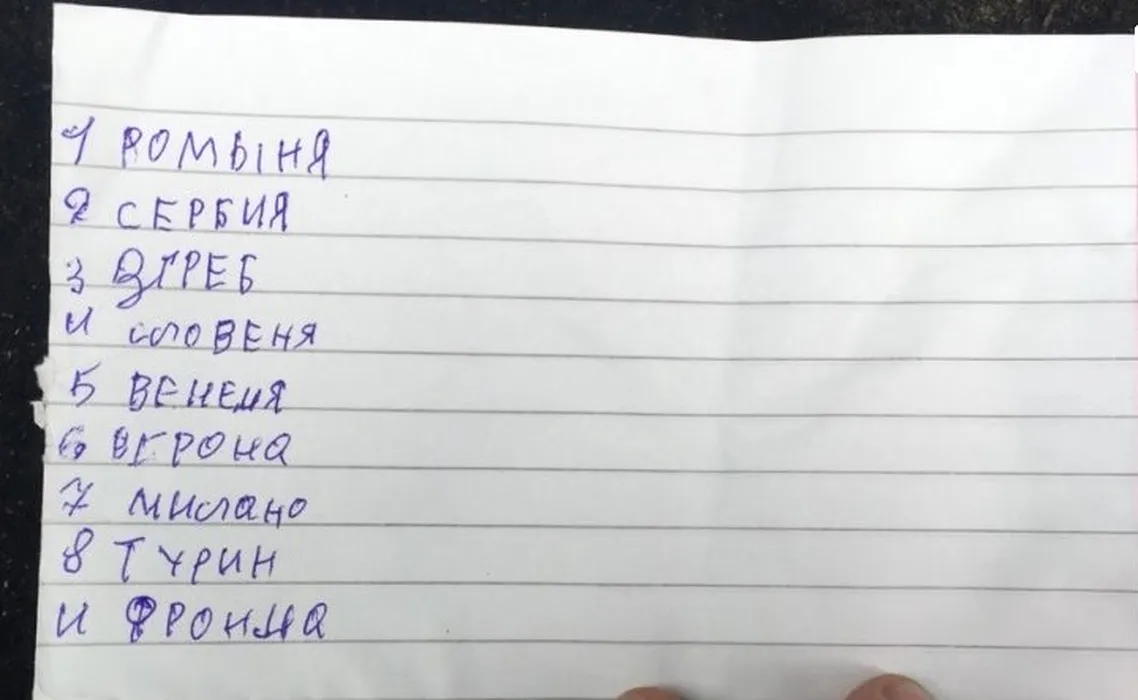 1 РОМЫНЯ
2 СЕРБИЯ
3 ЗГРЕБ
4 словЕНЯ
5 ВЕНЕЦЯ
6 ВЕРОНА
7 Милано
8 ТУРИН
И ФРОНЦА